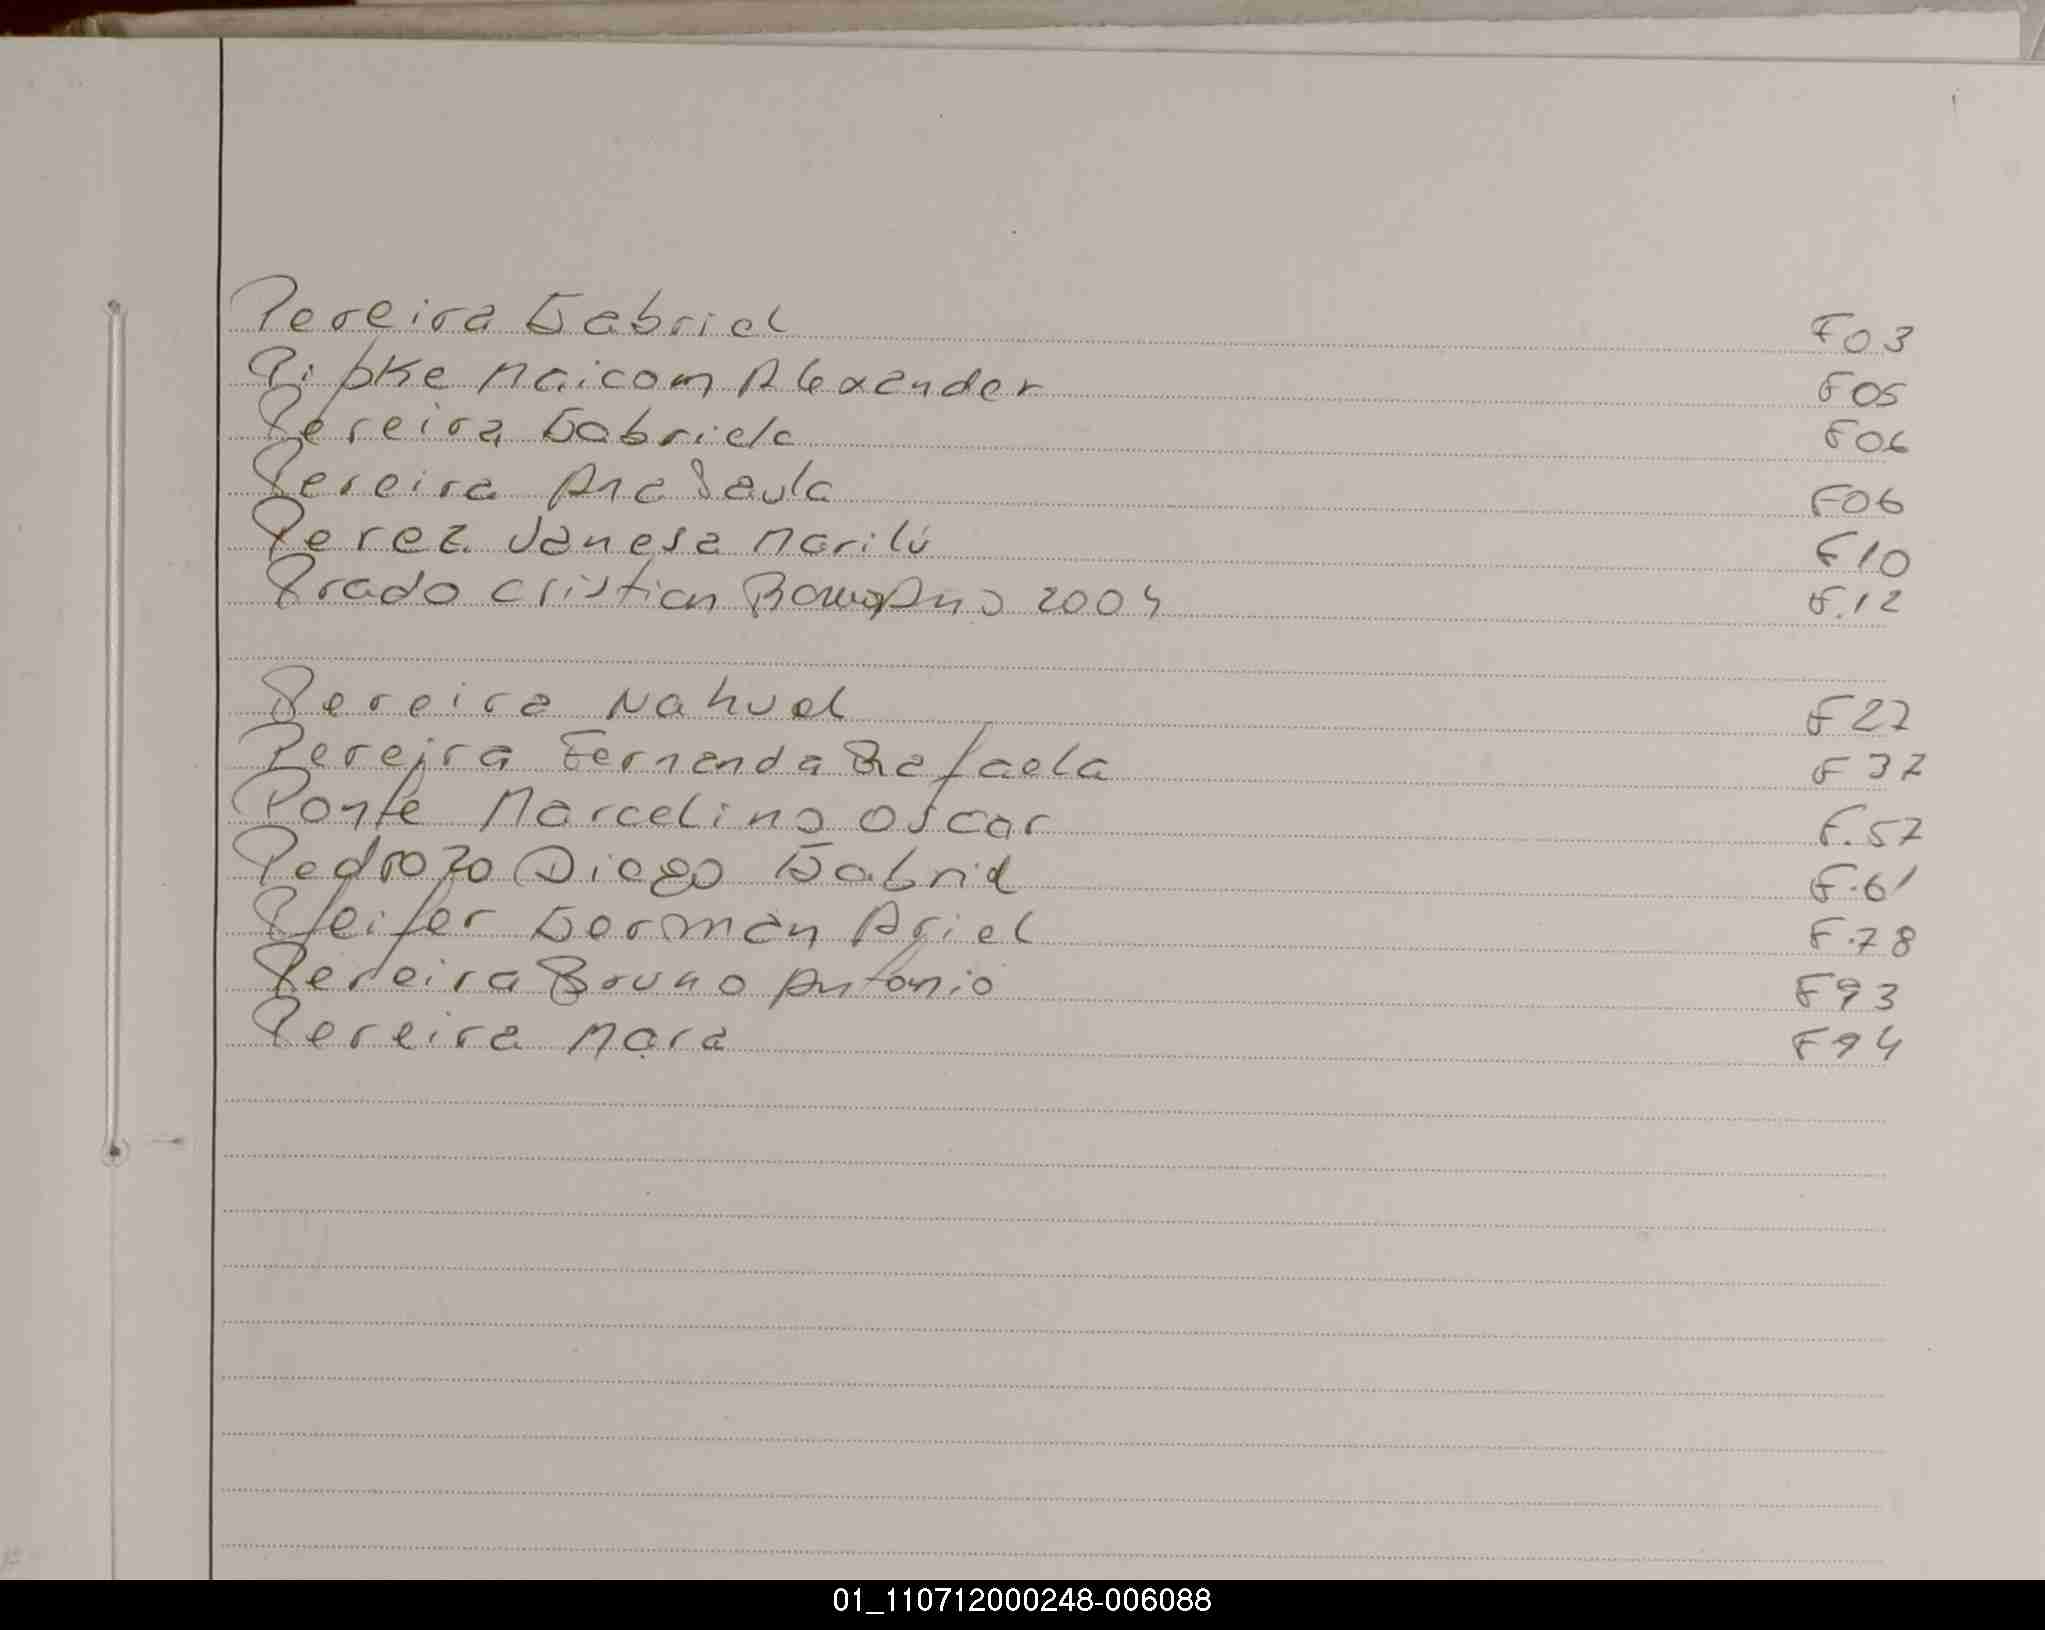 Pereira Gabriel F03
Pipke Maicom Alexander F05
Pereira Gabriela F06
Pereira Ana Paula F06
Perez Vanesa Marilú F10
Prado Cristian 2004 F.12
Pereira Nahuel F27
Pereira Fernanda Rafaela F37
Ponte Marcelino Oscar F.57
Pedrozo Diego Gabriel F.61
Pfeifer German Ariel F.78
Pereira Bruno Antonio F93
Pereira Mara F94
01_110712000248-006088